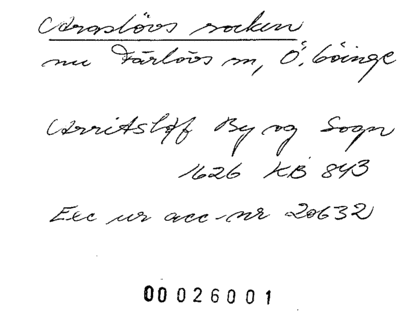 Araslövs socken
nu Färlövs sn, Ö. Göinge
Arritsløf By og Sogn
1626 KB 843
Exc ur acc-nr 20632
00026001